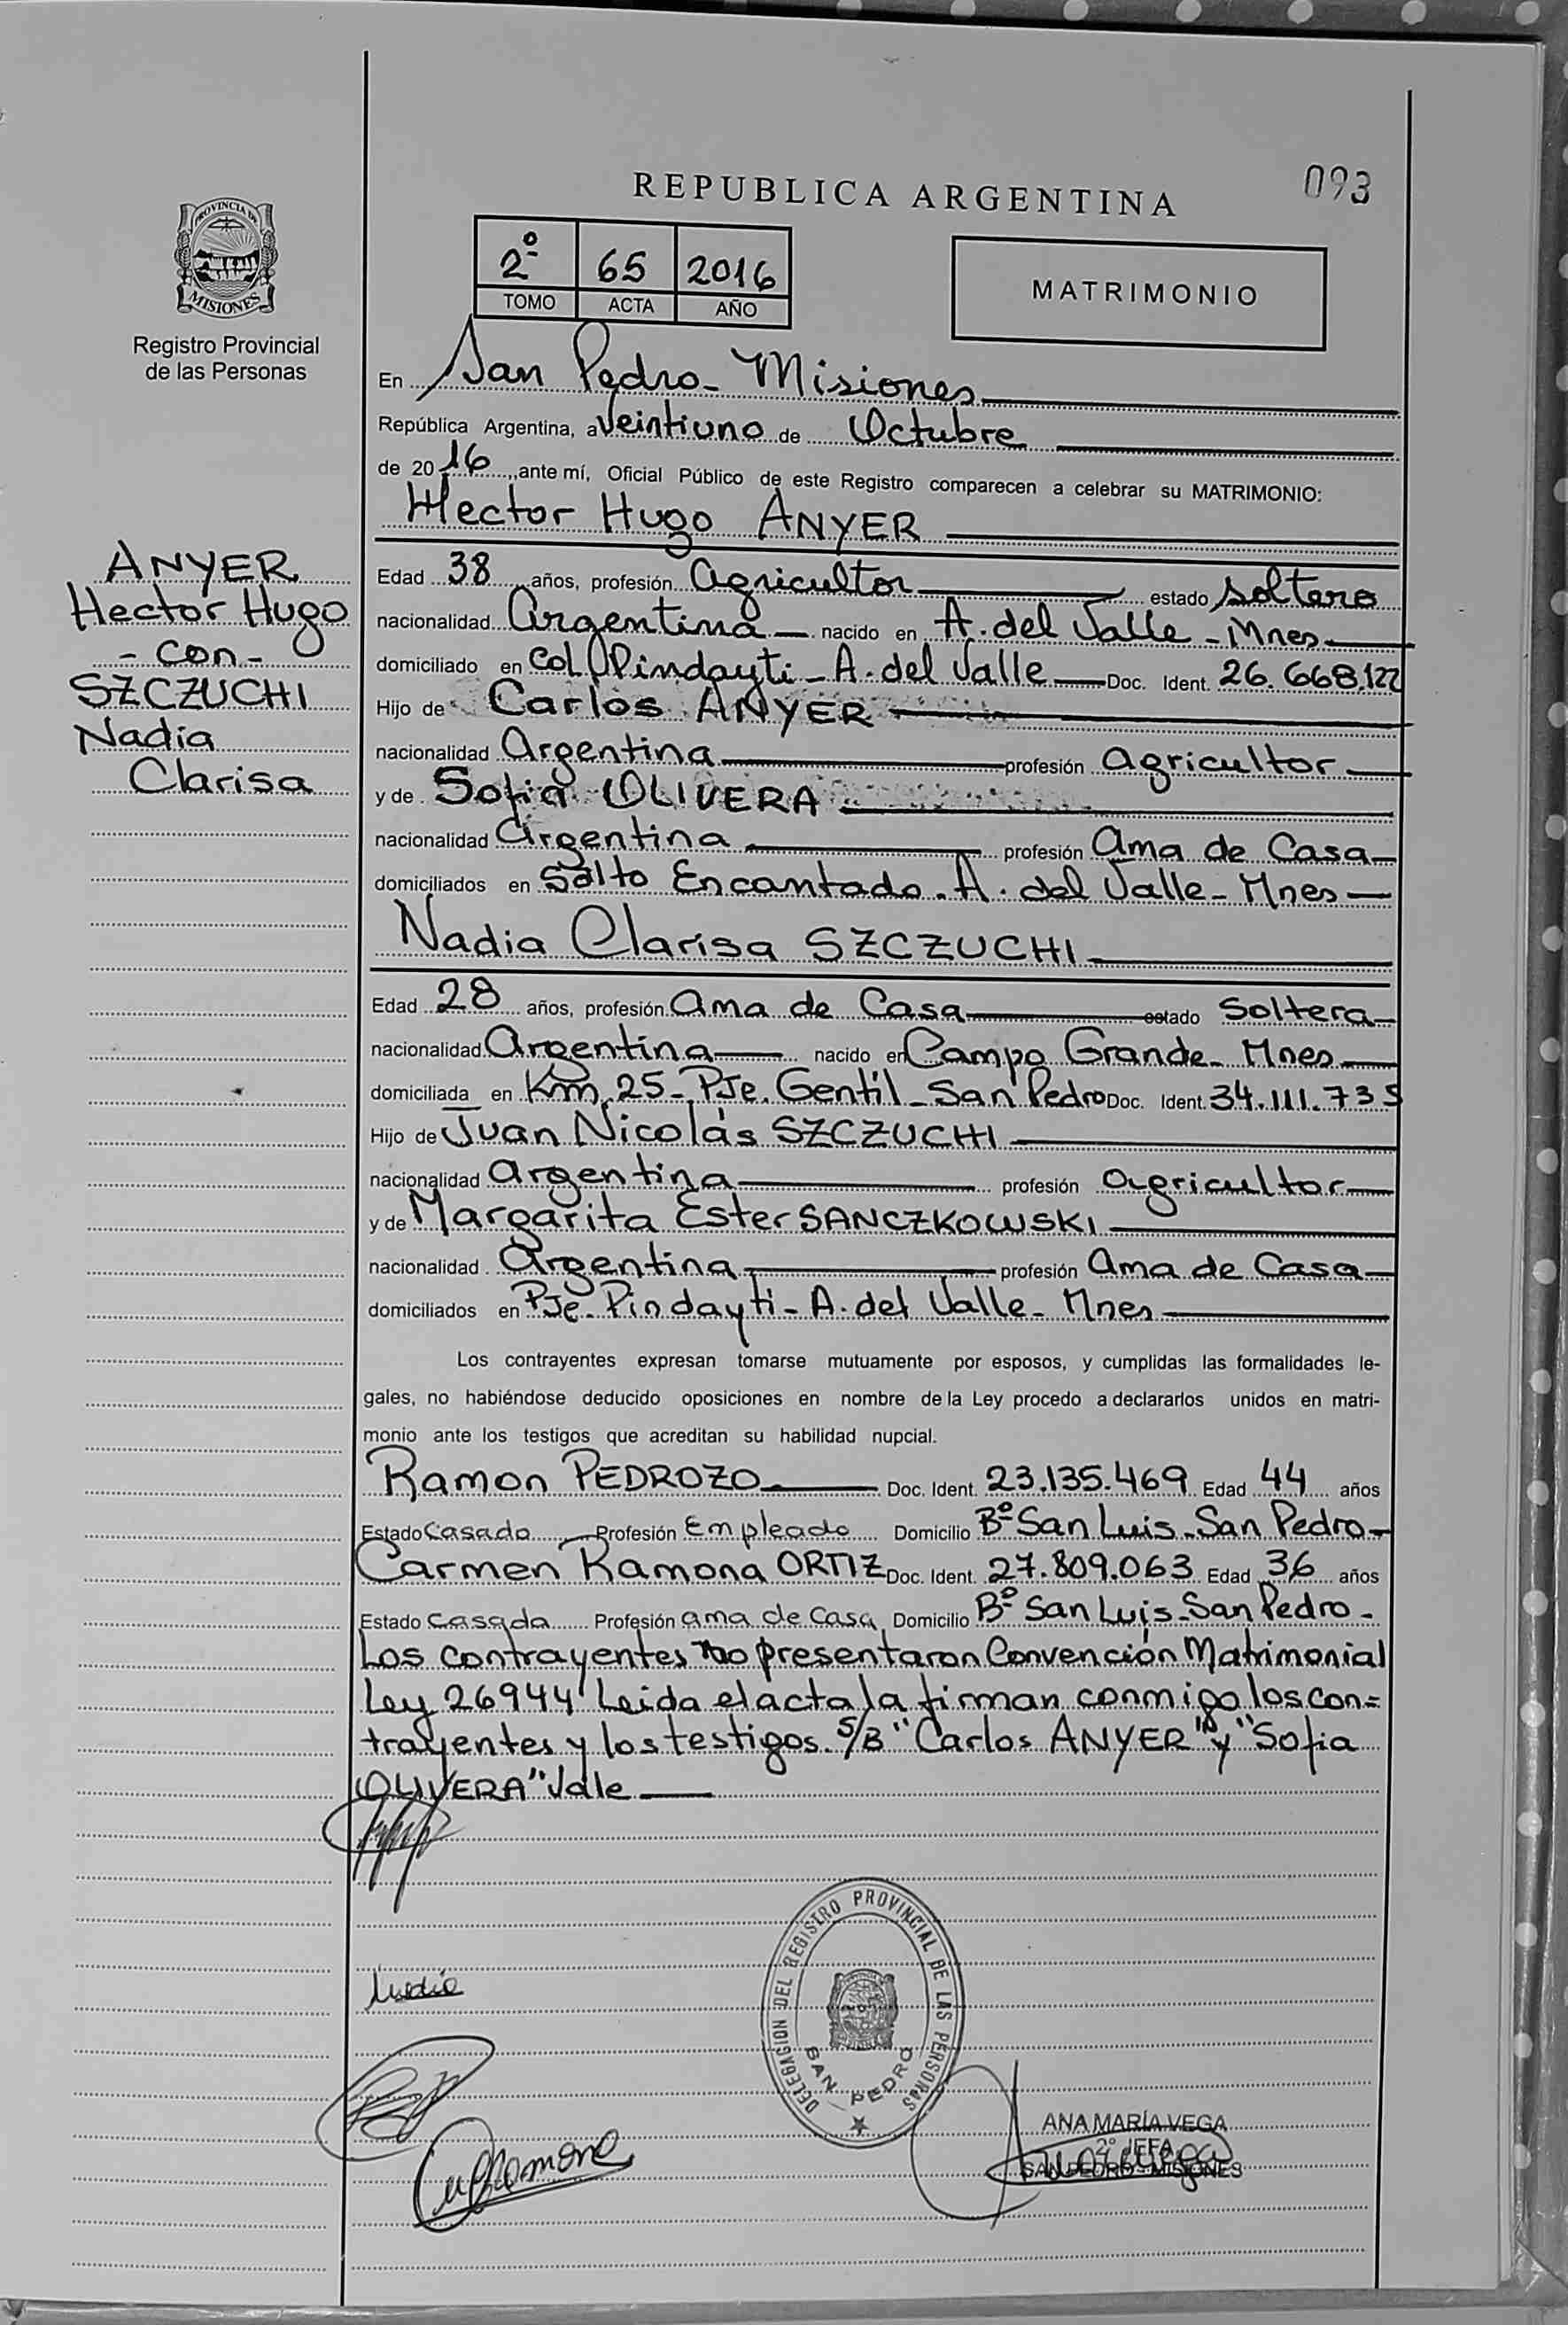 REPUBLICA ARGENTINA
093
PROVINCIA DE
MISIONES
Registro Provincial
de las Personas
2º 65 2016
TOMO ACTA AÑO
MATRIMONIO
En San Pedro - Misiones
República Argentina, a Veintiuno de Octubre
de 2016, ante mí, Oficial Público de este Registro comparecen a celebrar su MATRIMONIO:
Hector Hugo ANYER
ANYER
Hector Hugo
- con -
SZCZUCHI
Nadia
Clarisa
Edad 38 años, profesión Agricultor estado soltero
nacionalidad Argentina - nacido en A. del Valle - Mnes
domiciliado en Col. Pindayti - A. del Valle Doc. Ident. 26.668.122
Hijo de Carlos ANYER
nacionalidad Argentina profesión Agricultor
y de Sofia OLIVERA
nacionalidad Argentina profesión Ama de Casa
domiciliados en Salto Encantado. A. del Valle - Mnes
Nadia Clarisa SZCZUCHI
Edad 28 años, profesión Ama de Casa estado Soltera
nacionalidad Argentina nacido en Campo Grande - Mnes
domiciliada en Km. 25 - Pje. Gentil - San Pedro Doc. Ident. 34.111.735
Hijo de Juan Nicolás SZCZUCHI
nacionalidad Argentina profesión Agricultor
y de Margarita Ester SANCZKOWSKI
nacionalidad Argentina profesión Ama de Casa
domiciliados en Pje - Pindayti - A. del Valle - Mnes
Los contrayentes expresan tomarse mutuamente por esposos, y cumplidas las formalidades le-
gales, no habiéndose deducido oposiciones en nombre de la Ley procedo a declararlos unidos en matri-
monio ante los testigos que acreditan su habilidad nupcial.
Ramon PEDROZO Doc. Ident. 23.135.469 Edad 44 años
Estado Casado Profesión Empleado Domicilio Bº San Luis - San Pedro
Carmen Ramona ORTIZ Doc. Ident. 27.809.063 Edad 36 años
Estado Casada Profesión ama de Casa Domicilio Bº San Luis - San Pedro -
Los contrayentes no presentaron Convención Matrimonial
Ley 26944 Leida el acta la firman conmigo los con=
trayentes y los testigos. S/B "Carlos ANYER" y "Sofia
OLIVERA" Vale
DELEGACION DEL REGISTRO PROVINCIAL DE LAS PERSONAS
SAN PEDRO
Nadia
ANA MARÍA VEGA
2º JEFA
SAN PEDRO - MISIONES